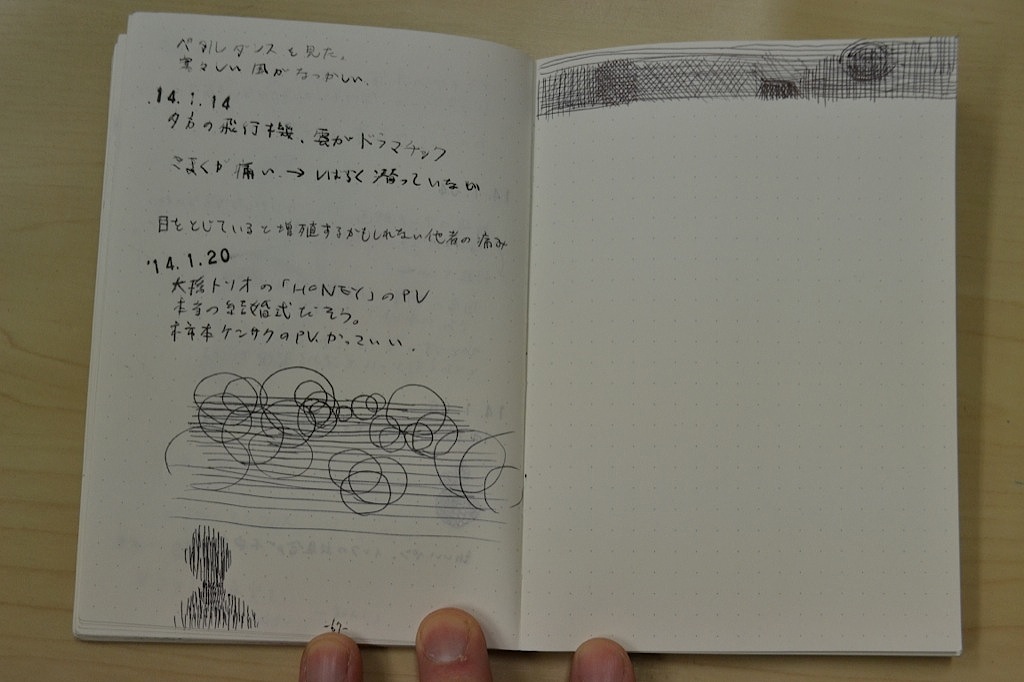 ペタルダンスを見た。
寒々しい風がなつかしい。
'14.1.14
夕方の飛行機、雲がドラマチック
こまくが痛い→しばらく潜っていないから
目をとじていると増殖するかもしれない他者の痛み
'14.1.20
大橋トリオの「HONEY」のPV
本当の結婚式だそう。
柿本ケンサクのPV.かっていい.
-67-